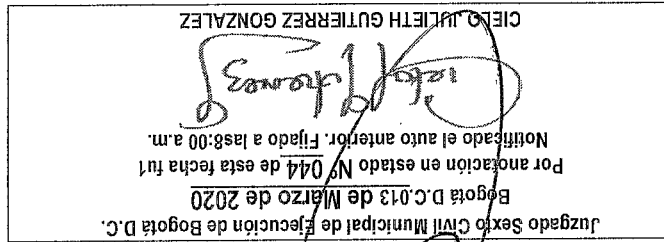 Juzgado Sexto Civil Municipal de Ejecución de Bogotá D.C.
Bogotá D.C.013 de Marzo de 2020
Por anotación en estado N° 044 de esta fecha fu1
Notificado el auto anterior. Fijado a las8:00 a.m.
CIELO JULIETH GUTIERREZ GONZALEZ